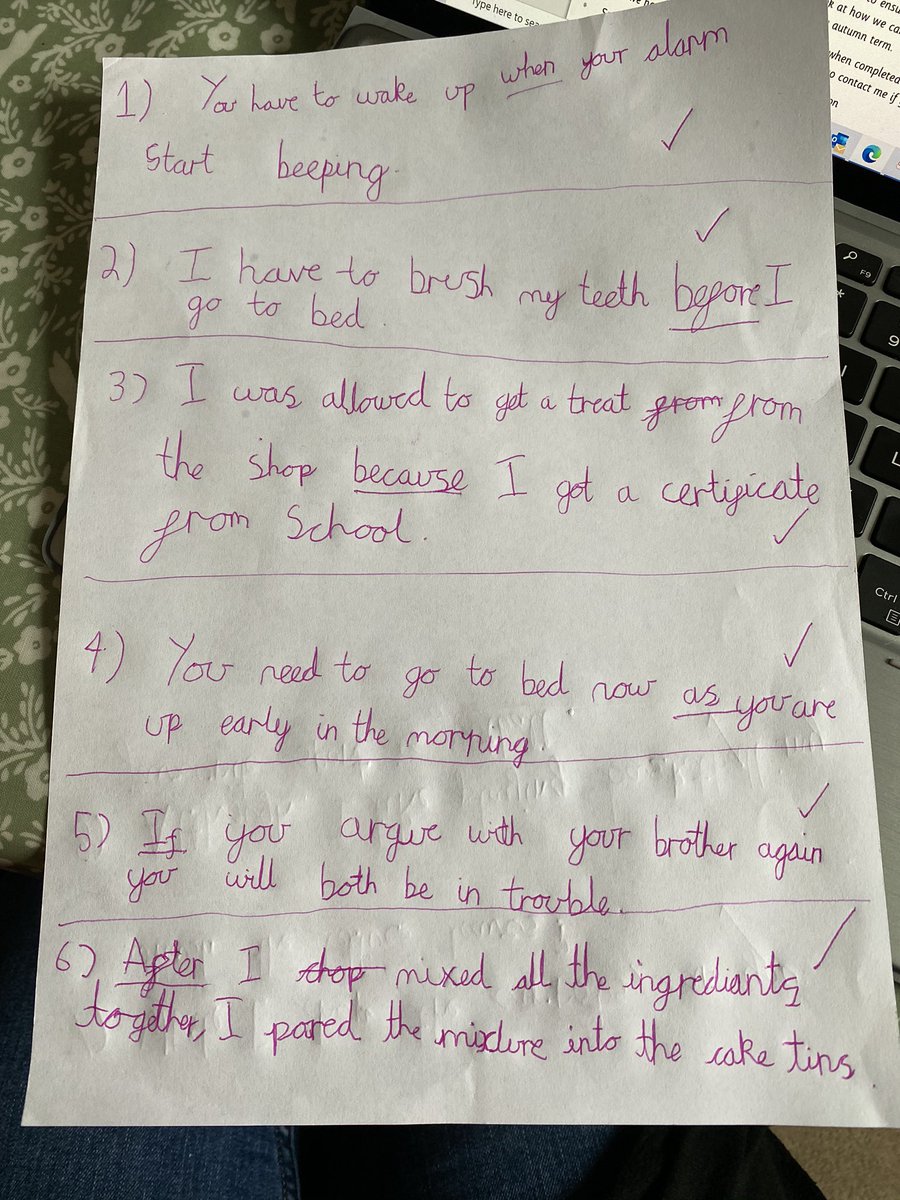 Type here to sea
to ensu
k at how we ca
autumn term.
when completed
o contact me if
on
1) You have to wake up when your alarm
start beeping.
2) I have to brush my teeth before I
go to bed.
3) I was allowed to get a treat from from
the shop because I got a certificate
from School.
4) You need to go to bed now as you are
up early in the morning.
5) If you argue with your brother again
you will both be in trouble.
6) After I chop mixed all the ingrediants
together, I pared the mixture into the cake tins.
F9
9
L
Ctrl